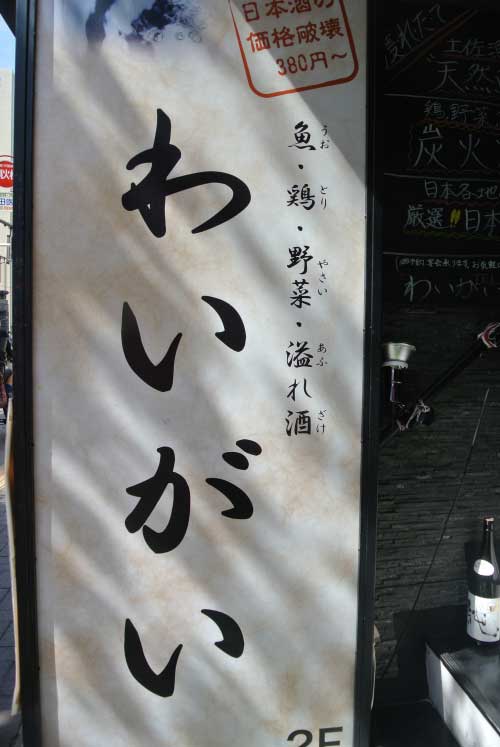 日本酒の
価格破壊
380円〜
魚・鶏・野菜・溢れ酒
うお とり やさい あふ ざけ
わいがい
2F
土佐
天然
鶏野菜
炭火
日本各地
厳選!!日本
わいがい